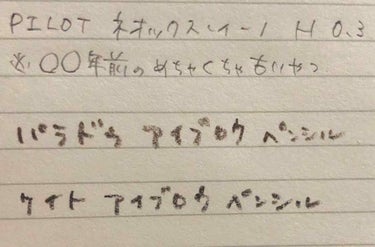 PILOT ネオックス・イーノ H 0.3
※.〇〇年前のめちゃくちゃ古いやつ
パラドゥ アイブロウ ペンシル
ケイト アイブロウ ペンシル